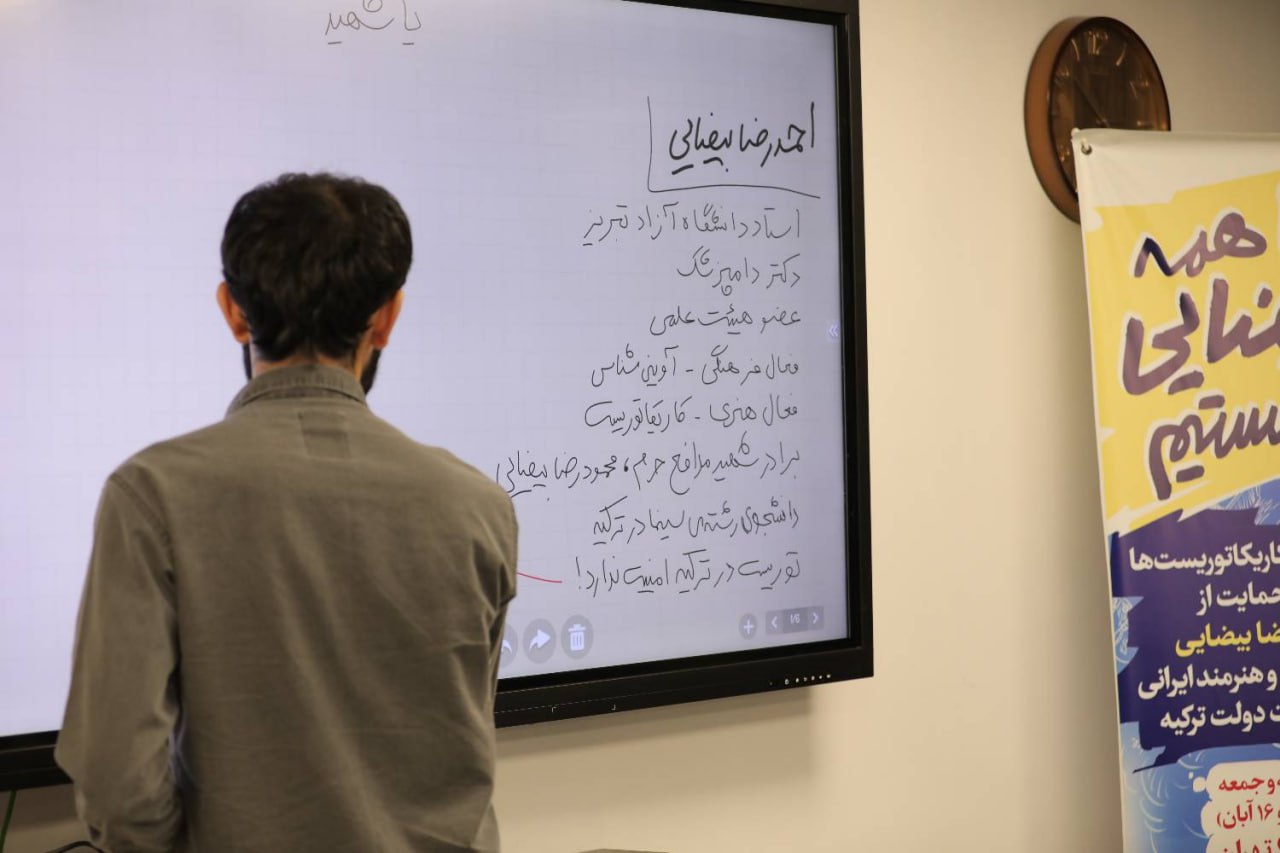 یا شهید
احمدرضا بیضایی
استاد دانشگاه آزاد تبریز
دکتر دامپزشک
عضو هیئت علمی
فعال فرهنگی - آوینی‌شناس
فعال هنری - کاریکاتوریست
برادر شهید مدافع حرم، محمودرضا بیضایی
دانشجوی رشته‌ی سینما در ترکیه
توریست در ترکیه امنیت ندارد!
1/6
12
همه
ستیم
کاریکاتوریست‌ها
حمایت از
ضا بیضایی
و هنرمند ایرانی
ت دولت ترکیه
و جمعه
و ۱۶ آبان)
تهران